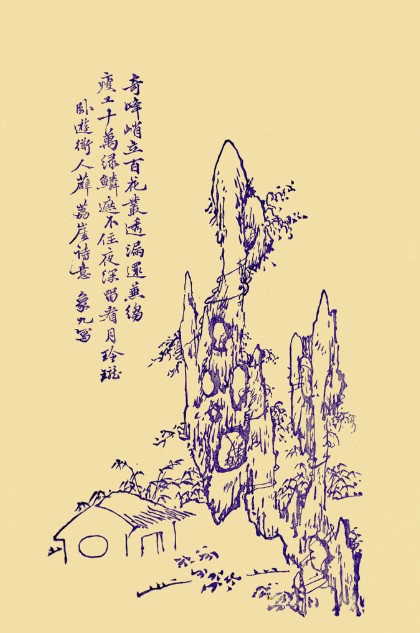 奇峰峭立百花叢透漏還兼縐
瘦工十萬緑鱗遮不住夜深留看月玲瓏
卧遊衡人薜荔崖诗意 象九寫